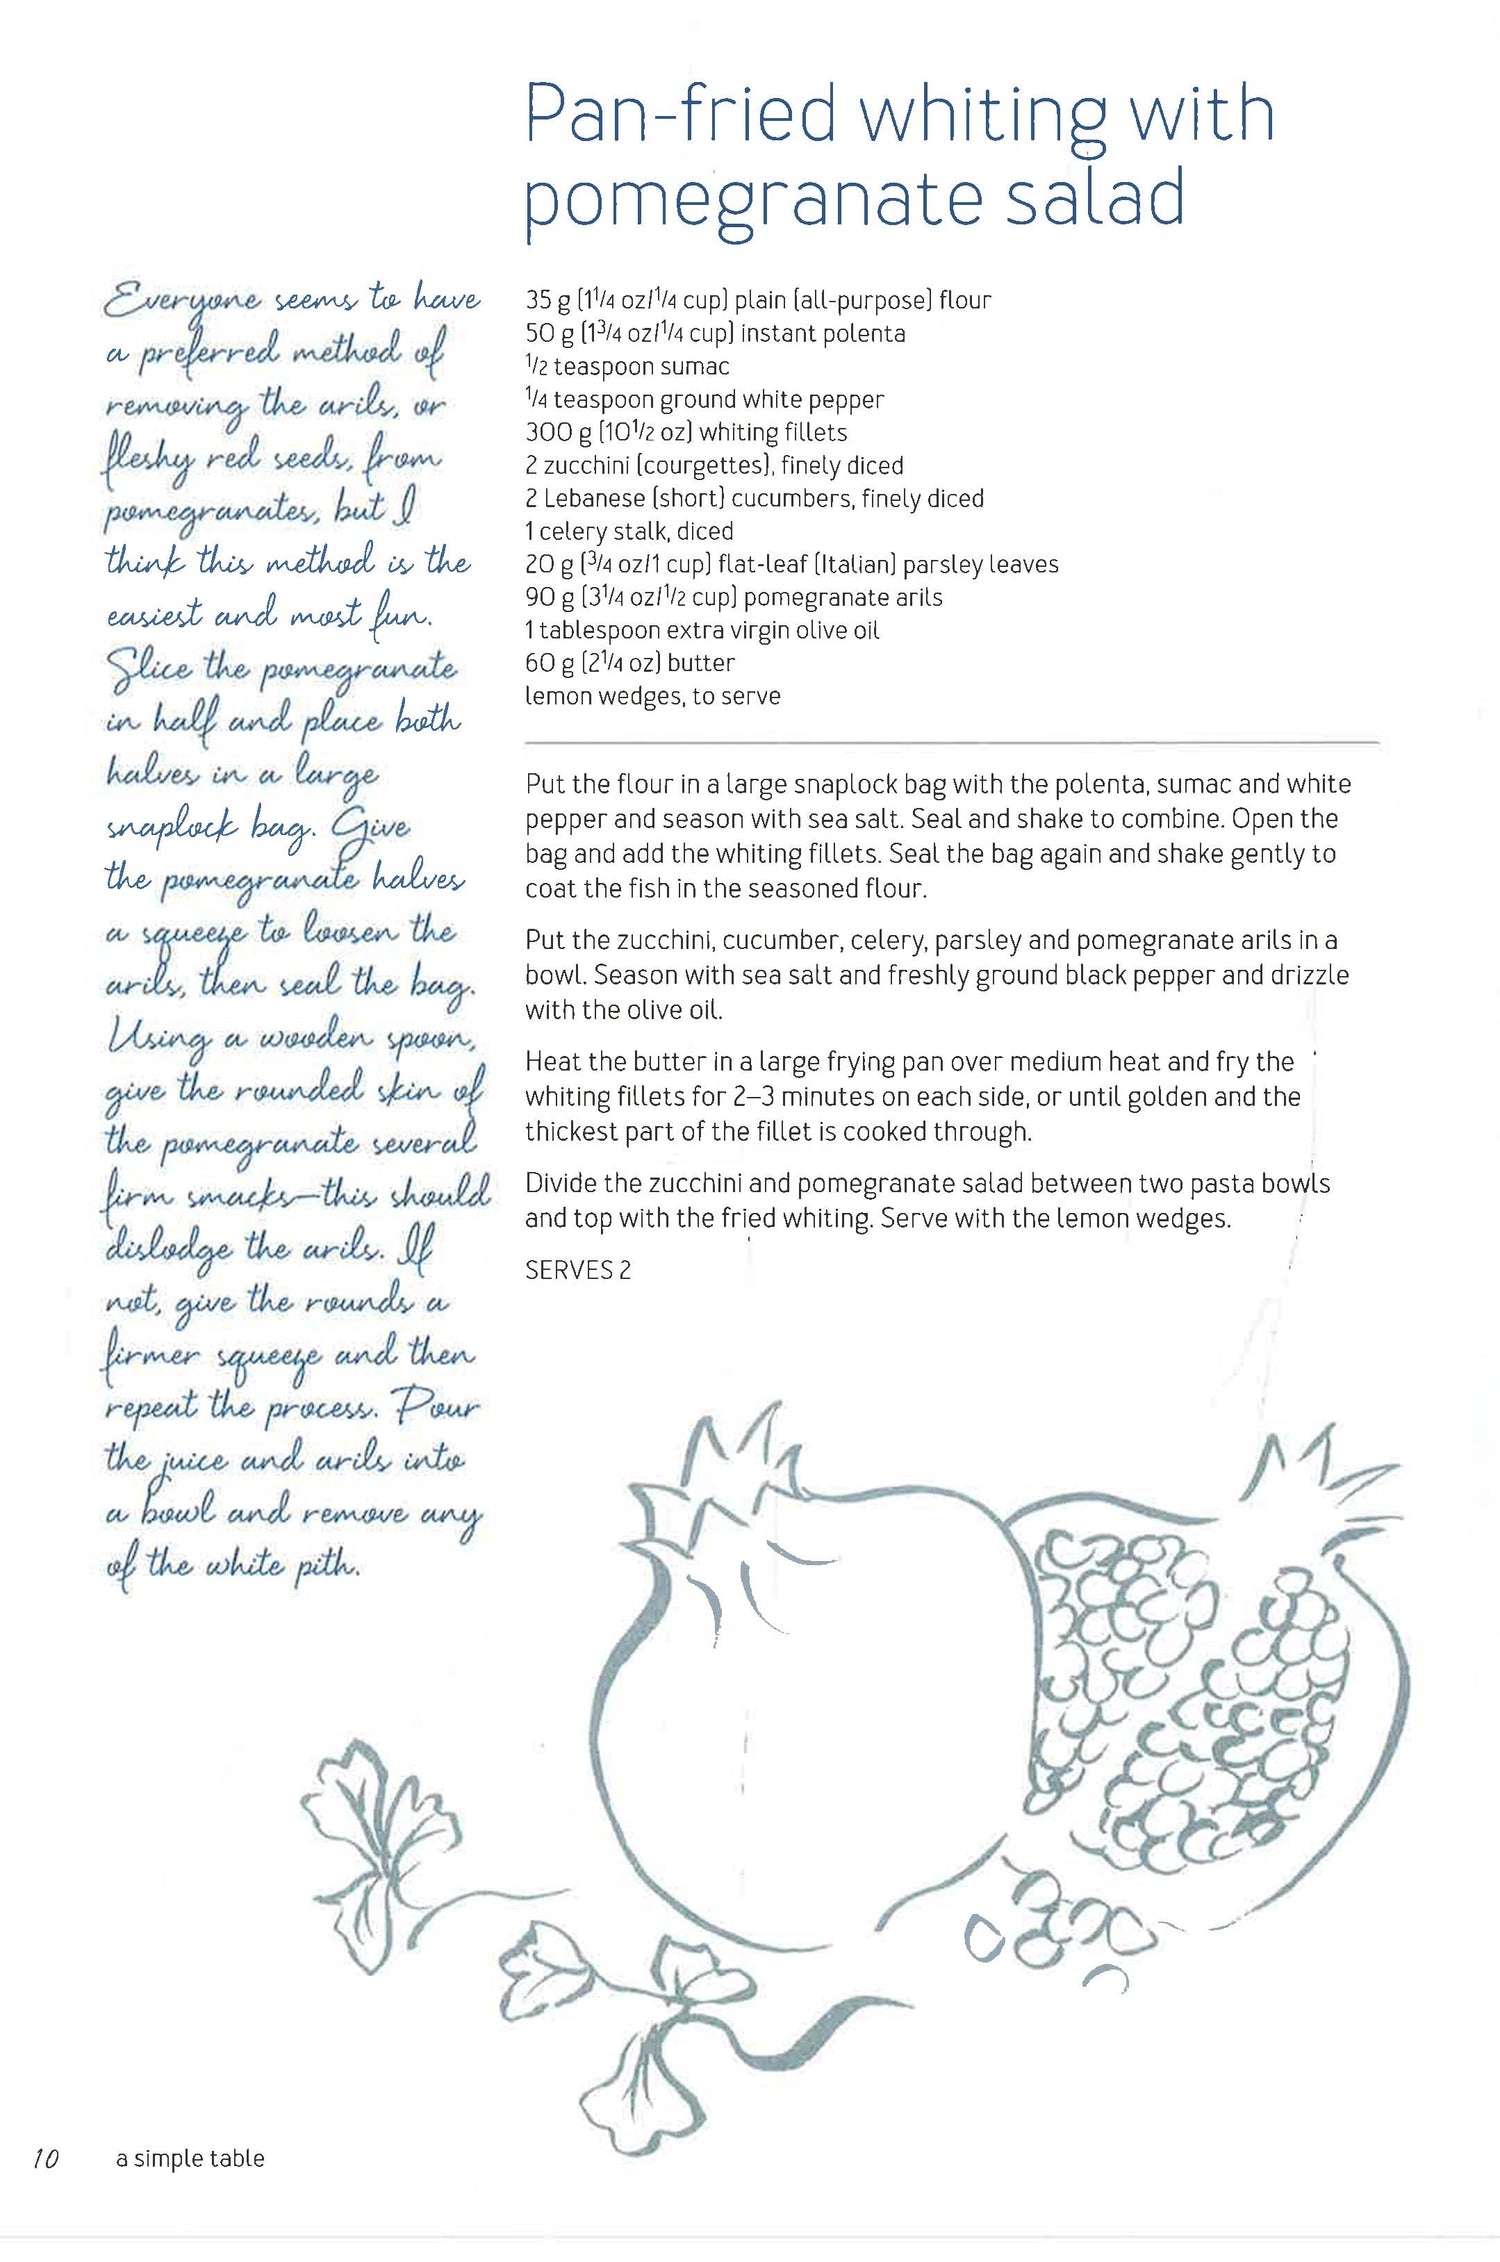 Pan-fried whiting with
pomegranate salad
Everyone seems to have
a preferred method of
removing the arils, or
fleshy red seeds, from
pomegranates, but I
think this method is the
easiest and most fun.
Slice the pomegranate
in half and place both
halves in a large
snaplock bag. Give
the pomegranate halves
a squeeze to loosen the
arils, then seal the bag.
Using a wooden spoon,
give the rounded skin of
the pomegranate several
firm smacks—this should
dislodge the arils. If
not, give the rounds a
firmer squeeze and then
repeat the process. Pour
the juice and arils into
a bowl and remove any
of the white pith.
35 g (1¼ oz/¼ cup) plain (all-purpose) flour
50 g (1¾ oz/¼ cup) instant polenta
½ teaspoon sumac
¼ teaspoon ground white pepper
300 g (10½ oz) whiting fillets
2 zucchini (courgettes), finely diced
2 Lebanese (short) cucumbers, finely diced
1 celery stalk, diced
20 g (¾ oz/1 cup) flat-leaf (Italian) parsley leaves
90 g (3¼ oz/½ cup) pomegranate arils
1 tablespoon extra virgin olive oil
60 g (2¼ oz) butter
lemon wedges, to serve
Put the flour in a large snaplock bag with the polenta, sumac and white
pepper and season with sea salt. Seal and shake to combine. Open the
bag and add the whiting fillets. Seal the bag again and shake gently to
coat the fish in the seasoned flour.
Put the zucchini, cucumber, celery, parsley and pomegranate arils in a
bowl. Season with sea salt and freshly ground black pepper and drizzle
with the olive oil.
Heat the butter in a large frying pan over medium heat and fry the
whiting fillets for 2–3 minutes on each side, or until golden and the
thickest part of the fillet is cooked through.
Divide the zucchini and pomegranate salad between two pasta bowls
and top with the fried whiting. Serve with the lemon wedges.
SERVES 2
10 a simple table